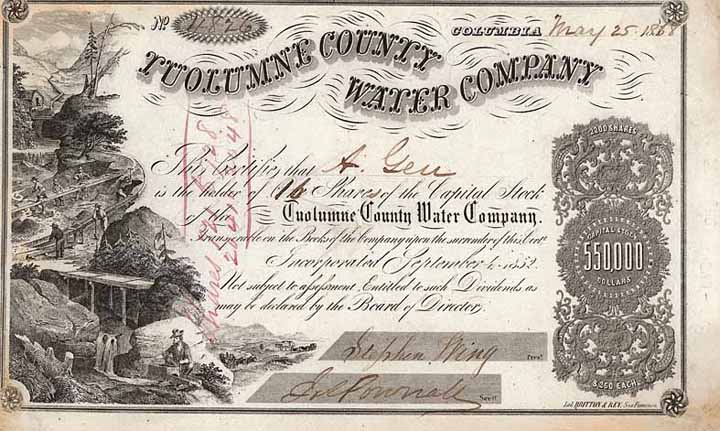 No.
COLUMBIA May 25 1868
TUOLUMNE COUNTY
WATER COMPANY
This Certifies that A. Gen
is the holder of 16 Shares of the Capital Stock
of the Tuolumne County Water Company.
Transferable on the Books of the Company upon the surrender of this Cert.
Incorporated September 4, 1852.
Not subject to assessment Entitled to such Dividends as
may be declared by the Board of Director.
Stephen Wing Prest.
Secy.
2200 SHARES
CAPITAL STOCK
550,000
DOLLARS
$250 EACH.
Lith. BRITTON & REY, San Francisco